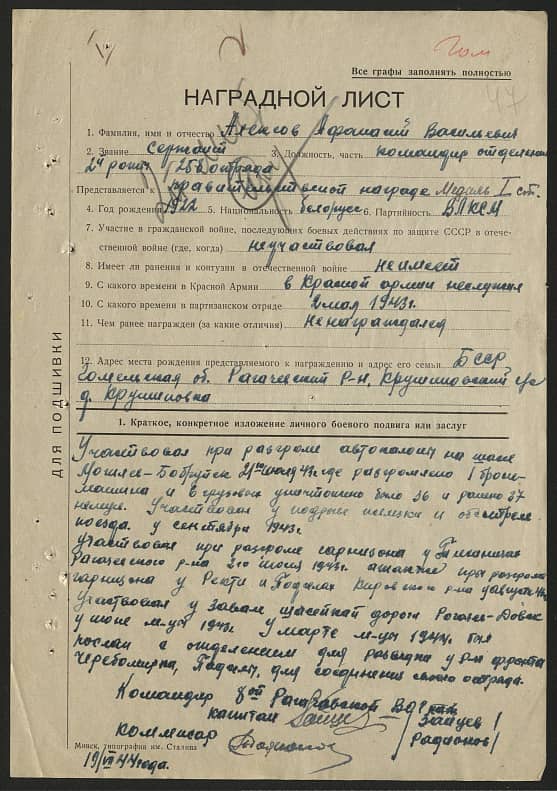 Гом
Все графы заполнять полностью
47
НАГРАДНОЙ ЛИСТ
1. Фамилия, имя и отчество Афанасий Васильевич
2. Звание Сержант 3. Должность, часть командир отделения
2й роты 252 отряда
Представляется к правительствен награде Медаль I ст.
4. Год рождения 1922 5. Национальность белорус 6. Партийность ВЛКСМ
7. Участие в гражданской войне, последующих боевых действиях по защите СССР в отече-
ственной войне (где, когда) неучаствовал
8. Имеет ли ранения и контузии в отечественной войне неимеет
9. С какого времени в Красной Армии в Красной армии неслужил
10. С какого времени в партизанском отряде 2 мая 1943 г.
11. Чем ранее награжден (за какие отличия) ненаграждался
12. Адрес места рождения представляемого к награждению и адрес его семьи БССР
Гомельская об. Рагачевский р-н, Крушиновский с/с
д. Крушиновка
ДЛЯ ПОДШИВКИ
1. Краткое, конкретное изложение личного боевого подвига или заслуг
Участвовал при разгроме автоколону на шасе
Могилев-Бобруйск 21го июля 43г. где разгромлено 1 брон-
машина и 8 грузовых уничтожено было 36 и ранено 37
немцув. Участвовал у подрыве немецки и обсмтреле
поезда. у сентября 1943г.
Участвовал при разгроме гарнизона у
Рагачевского р-на 2го июня 1943г. атакже при разгроме
гарнизона у Ректи и Кировского р-на уавгусте 43г.
Участвовал у завале шасейнай дороги Рогачев-Довск
у июне м-цы 1943г. У марте м-цы 1944г. был
послан с отделением для разведки у р-н фронта
для соединения своего отряда.
Командир 8ой Рагачевской
капитан /Зайцев/
Коммисар /Радионов/
Минск, типография им. Сталина
19/VII 44 года.